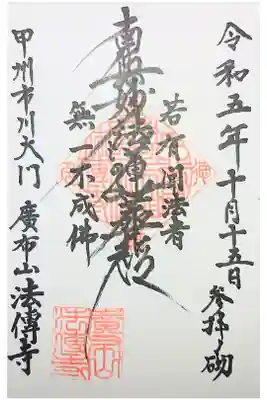 令和五年十月十五日
参拝之砌
若有聞法者
南無妙法蓮華経
無一不成佛
甲州市川大門 廣布山 法傳寺
廣布山
法傳寺